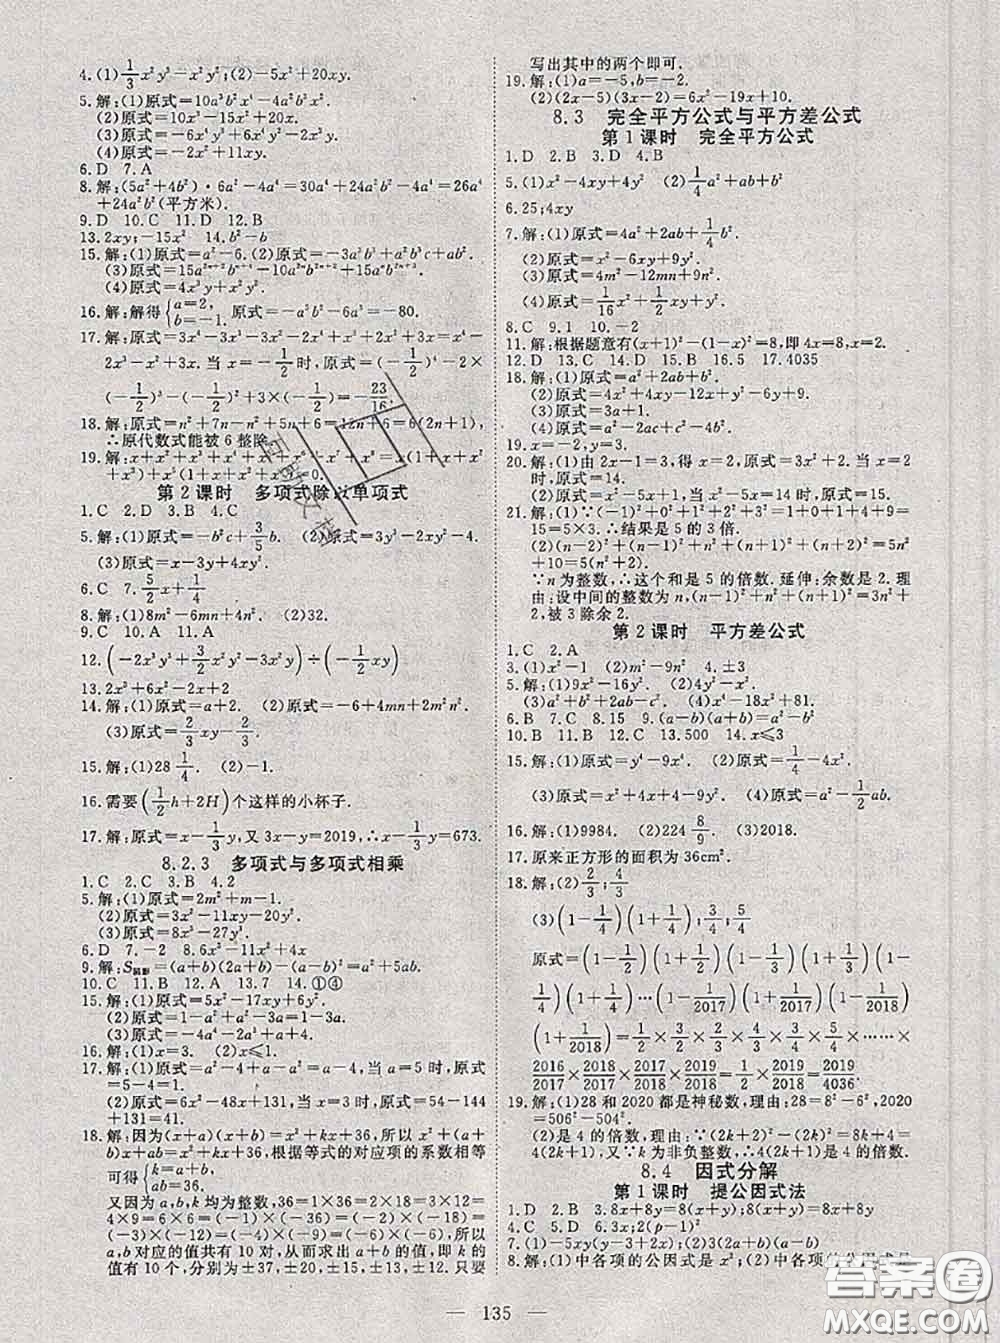 4.(1)1/3x²y³−x²y²;(2)−5x²+20xy.
5.解:(1)原式=10a³b²−8a²b²c.
(2)原式=10x³−15x².
(3)原式=6x⁴−15x³−18x².
(4)原式=−2x²+11xy.
6.D 7.A
8.解:(5a²+4b²)·6a²−4a⁴=30a⁴+24a²b²−4a⁴=26a⁴
+24a²b²(平方米).
9.D 10.C 11.D 12.B
13.2xy;−15x² 14.b²−b
16.解:解得{a=2,b=−1. 原式=−a⁵b⁴−5a⁴=−80.
17.解:原式=3x⁴−3x³−3x²−2x⁴+3x³+3x=x⁴−
2x²−x²+3x.当x=−1/2时,原式=(−1/2)⁴−2×
(−1/2)³−(−1/2)²+3×(−1/2)=−23/16.
18.解:原式=n²+7n−n²+5n+6=12n+6=6(2n+1),
∴原代数式能被6整除.
第2课时 多项式除以单项式
1.C 2.D 3.B 4.C
5.解:(1)原式=−b²c+3/5b. (2)原式=3y³−2xy²−4.
(3)原式=x−3y−1/3.
6.C 7.5/2x+1/4
8.解:(1)8m²−6mn+4n². (2)32.
9.C 10.A 11.A
12.(−2x³y³+3/2x²y²−2x³y²)÷(−1/2xy)
13.2x³+6x²−2x+2
14.解:(1)原式=a+2. (2)原式=−6+4mn+2m²n².
(3)原式=2/3xy−2/3.
15.解:(1)28 1/4. (2)−1.
16.需要(1/2h+2H)个这样的小杯子.
17.解:原式=x−1/3y,又3x−y=2019,∴x−1/3y=673.
8.2.3 多项式与多项式相乘
1.C 2.C 3.B 4.2
5.解:(1)原式=2m²+m−1.
(2)原式=3x²−11xy−20y².
(3)原式=8x³−27y³.
6.D 7.−2 8.6x³−11x²+4x
9.解:S阴影=(a+b)(2a+b)−(a−b)²=a²+5ab.
10.C 11.B 12.A 13.7 14.①④
15.解:(1)原式=5x²−17xy+5y².
(2)原式=1−a²+a²−2a=1−2a.
(3)原式=−4a⁴−2a³+a+4.
16.解:(1)x=3. (2)x≤1.
17.解:(1)原式=a²−4+a−a²=a−4,当a=5时,原式
=5−4=1.
(2)原式=6x²−48x+131,当x=3时,原式=54−144
+131=41.
18.解:因为(x+a)(x+b)=x²+kx+36,所以x²+(a+
b)x+ab=x²+kx+36,根据等式的对应项的系数相等
可得{k=a+b,ab=36.
又因为a,b,k均为整数,36=1×36=2×18=3×12=
4×9=6×6=(−1)×(−36)=(−2)×(−18)=
(−3)×(−12)=(−4)×(−9)=(−6)×(−6),所以
a,b对应的值共有10对,从而求出a+b的值,即k的
值有10个,分别为±37,±20,±15,±13,±12,只要
写出其中的两个即可.
19.解:(1)a=−5,b=−2.
(2)(2x−5)(3x−2)=6x²−19x+10.
8.3 完全平方公式与平方差公式
第1课时 完全平方公式
1.D 2.B 3.D 4.B
5.(1)x²−4xy+4y² (2)1/4a²+ab+b²
6.25;4xy
7.解:(1)原式=4a²+2ab+1/4b².
(2)原式=x²−6xy+9y².
(3)原式=4m²−12mn+9n².
(4)原式=1/16x²+1/2xy+y².
8.C 9.1 10.−2
11.解:根据题意有(x+1)²−(1−x)²=8,即4x=8,x=2.
12.D 13.C 14.D 15.B 16.5 17.4035
18.解:(1)原式=a²+2ab+b².
(2)原式=4x²−12xy−4x+9y²+6y+1.
(3)原式=3a+1.
(4)原式=a²−b²+2bc−c².
19.x=−3.
20.解:(1)由2x−1=3,得x=2,原式=3x²+2.当x=2
时,原式=14.
(2)原式=x²−5x+1.当x=3时,原式=−5.
21.解:(1)∵(−1)²+0²+1²+2²+3²=1+0+1+4+9=
15=5×3.∴结果是5的3倍.
(2)(n−2)²+(n−1)²+n²+(n+1)²+(n+2)²=5n²
+10=5(n²+2).
∵n为整数,∴这个和是5的倍数.延伸:余数是2.理
由:设中间的整数为n,(n−1)²+n²+(n+1)²=3n²+
2,被3除余2.
第2课时 平方差公式
1.C 2.A
3.(1)x²−1 (2)m²−9n² 4.±3
5.解:(1)9x²−16y². (2)4y²−x².
(3)a²+b²+2ab−c². (4)x⁴−18x²+81.
6.B 7.C 8.15 9.(a−b)(a+b)=a²−b²
10.B 11.C 12.D 13.500 14.x≤3
15.解:(1)原式=y⁴−9x⁴. (2)原式=1/4−4x².
(3)原式=9x²−40xy+20y². (4)原式=a²−1/2ab.
16.解:(1)9984. (2)224 8/9. (3)2018.
17.原来正方形的面积为36cm².
18.解:(2)2/3;4/3
(3)(1−1/4)(1+1/4);3/4;5/4
原式=(1−1/2)(1+1/2)(1−1/3)(1+1/3)(1−
1/4)(1+1/4)…(1−1/2017)(1+1/2017)(1−1/2018)
(1+1/2018)=1/2×3/2×2/3×4/3×3/4×5/4×…×
2016/2017×2018/2017×2017/2018×2019/2018=1/2×2019/2018=2019/4036.
19.解:(1)28和2020都是神秘数,理由:28=8²−6²,2020
=506²−504².
(2)是4的倍数,理由:∵(2k+2)²−(2k)²=8k+4=
4(2k+1).又∵k为非负整数,∴4(2k+1)是4的倍数.
8.4 因式分解
第1课时 提公因式法
1.D 2.B 3.8x+8y=8(x+y);8(x+y)=8x+8y
4.C 5.D 6.3x;2(p−1)²
7.(1)−5xy(y−3) (2)3(2a+b)(a−b)
8.解:(1)中各项的公因式是x²;(2)中各项的公因式是
— 135 —
答案圈
MXQE.COM